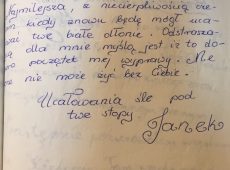 Najmilejsza, z niecierpliwością cze-
kiedy znowu będę mógł uca-
twe białe dłonie. Odstrasza-
dla mnie myślą jest iż to do-
początek mej wyprawy. Me
nie może żyć bez Ciebie.
Ucałowania śle pod
twe stopy
Janek